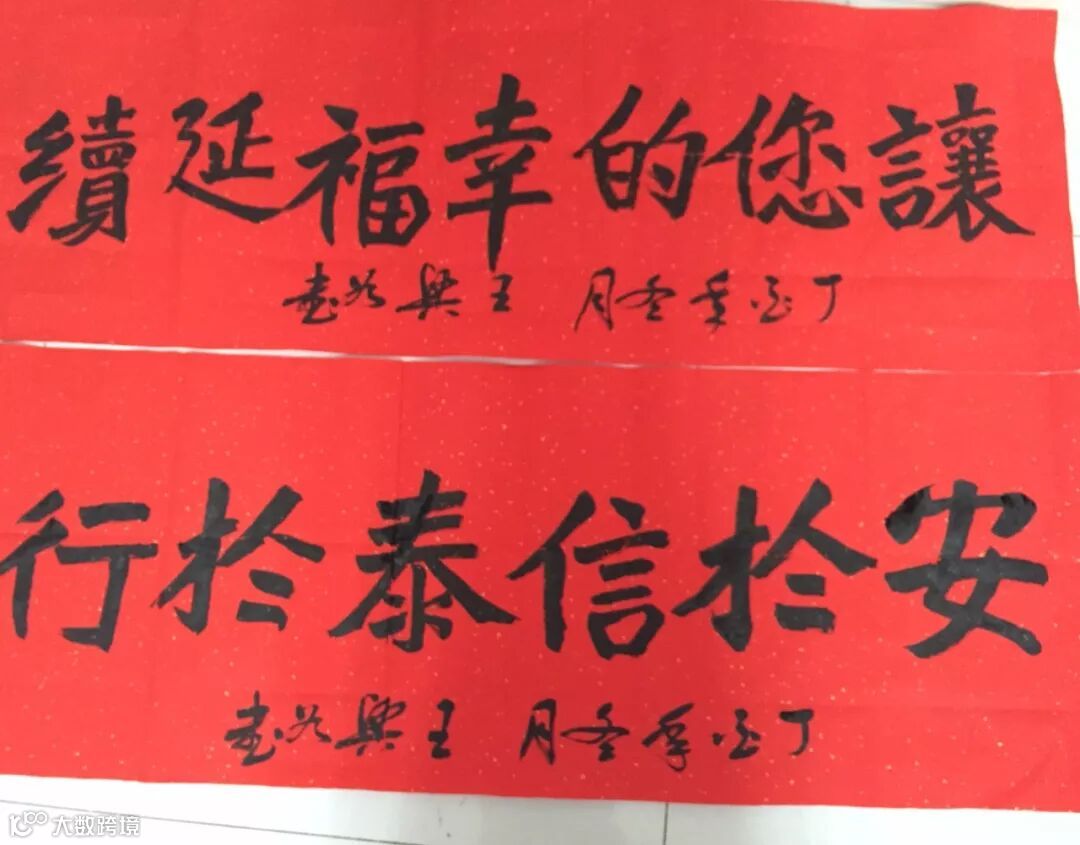 讓您的幸福延續
丁酉年冬月 王興谷書
安於信泰於行
丁酉年冬月 王興谷書
大数跨境